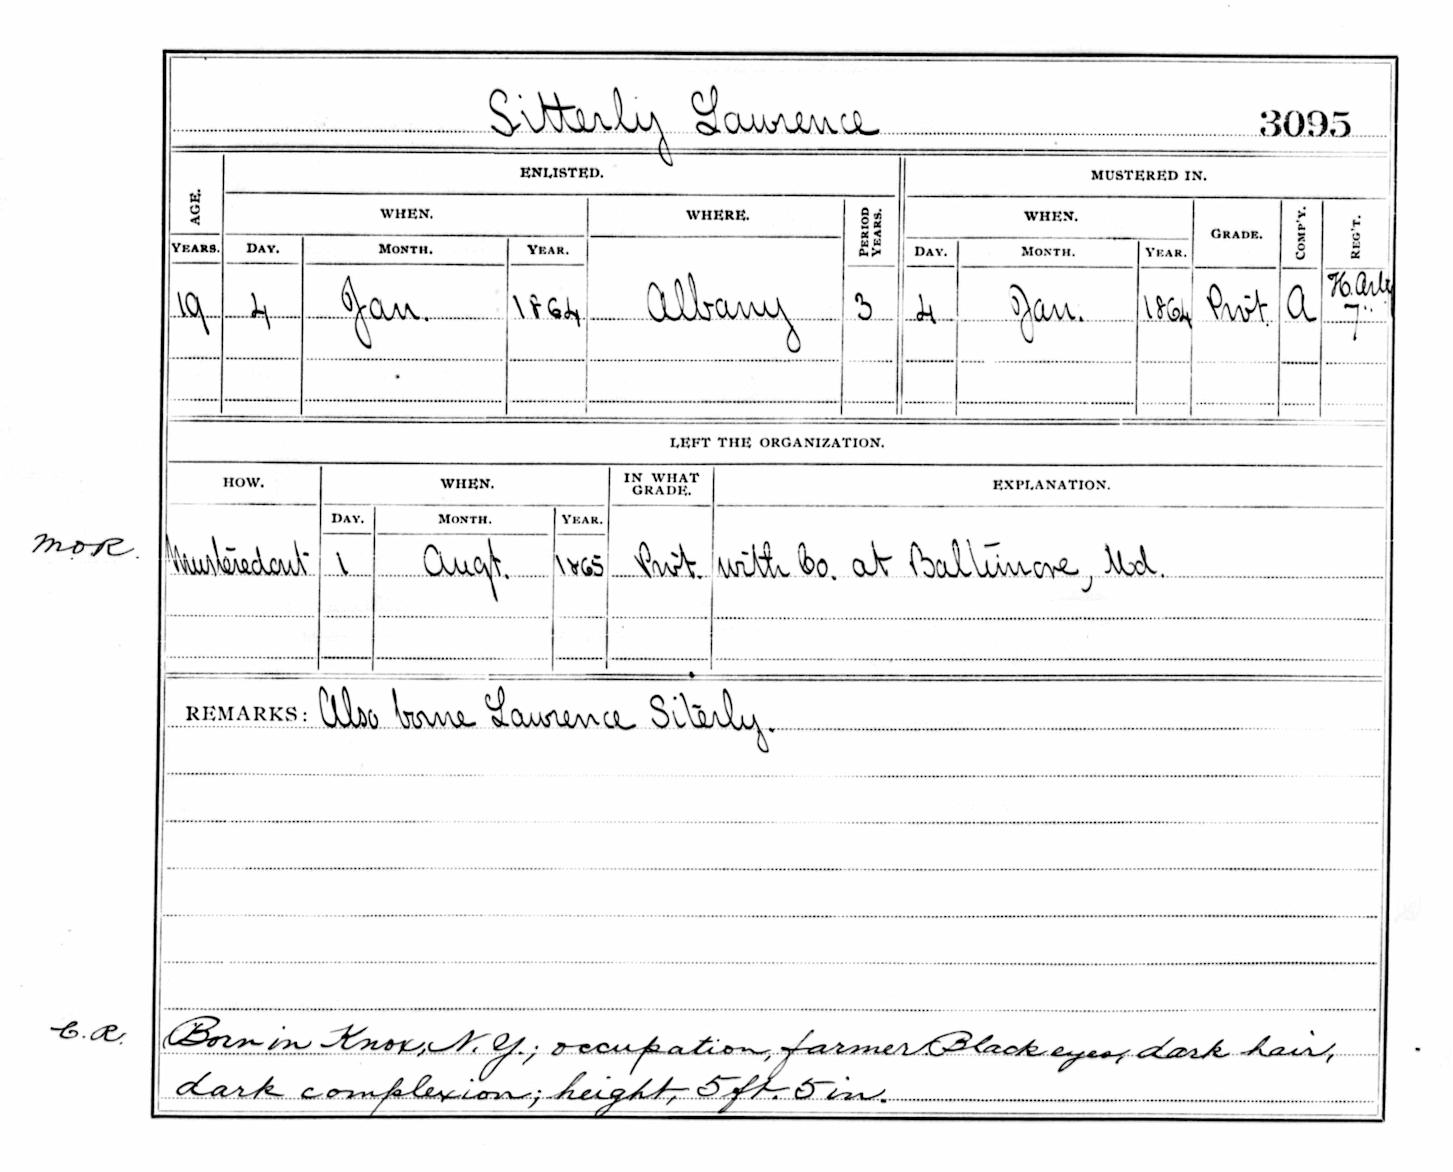 Sitterly Lawrence 3095
ENLISTED. MUSTERED IN.
AGE. WHEN. WHERE. PERIOD YEARS. WHEN. GRADE. COMP'Y. REG'T.
YEARS. DAY. MONTH. YEAR. DAY. MONTH. YEAR.
19 4 Jan. 1864 Albany 3 4 Jan. 1864 Privt. A H. Arty 7"
LEFT THE ORGANIZATION.
HOW. WHEN. IN WHAT GRADE. EXPLANATION.
DAY. MONTH. YEAR.
M.O.R. Mustered out 1 Augt. 1865 Privt. with Co. at Baltimore, Md.
REMARKS: Also borne Lawrence Siterly.
C.R. Born in Knox, N.Y.; occupation, farmer. Black eyes, dark hair,
dark complexion; height, 5 ft. 5 in.